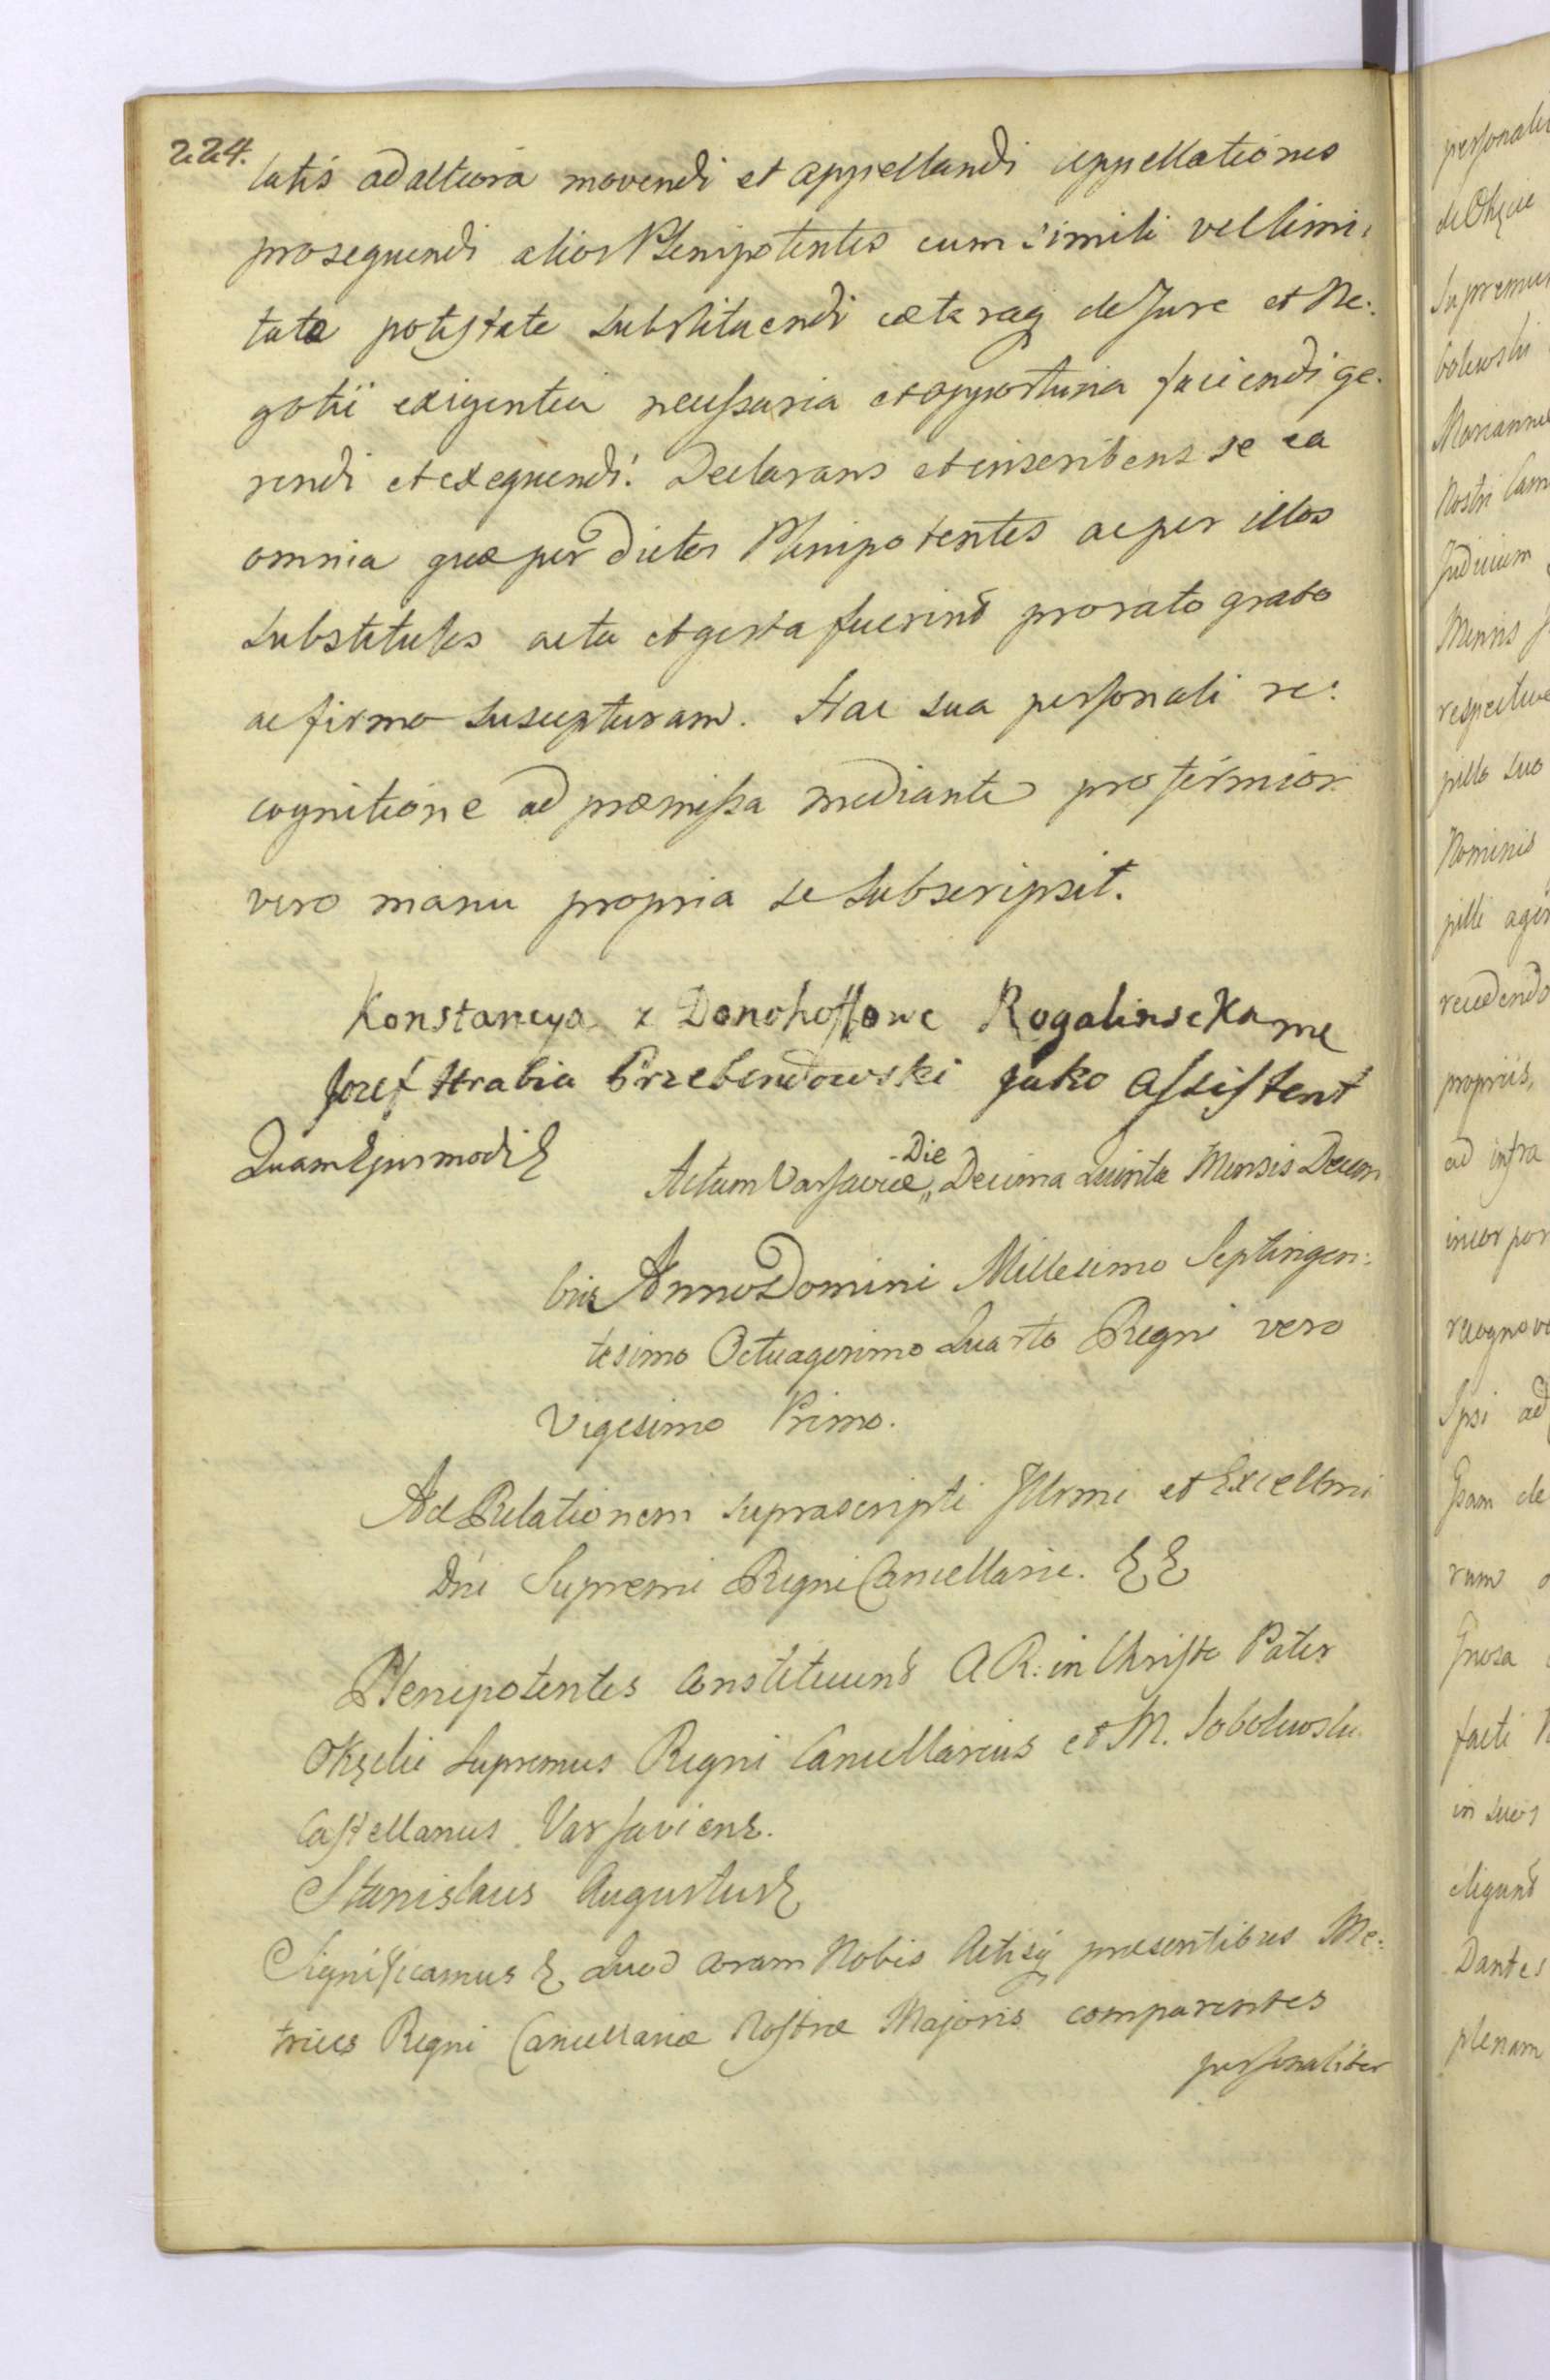 224.
latis ad altiora movendi et appellandi appellationes
prosequendi alios Plenipotentes cum simili vel limi:
tata potestate substituendi caeteraq de Jure et Ne:
gotii exigentia necessaria et opportuna faciendi ge:
rendi et exequendi. Declarans et inscribens se ea
omnia quae per dictos Plenipotentes ac per illos
substitutos acta et gesta fuerint pro rato grato
ac firmo suscepturam. Hac sua personali re:
cognitione ad praemissa mediante pro firmiori
vero manu propria se subscripsit.
Konstancya z Donohoffowe Rogalinscka me
Jozef Hrabia Przebendowski jako Assistent
Quam Ejusmodi &
Actum Varsaviae Die Decima Quinta Mensis Decem
bris Anno Domini Millesimo Septingen:
tesimo Octuagesimo Quarto Regni vero
Vigesimo Primo.
Ad Relationem suprascripti Illrmi et Excellmi
Dni Supremi Regni Cancellarii. & &
Plenipotentes Constituunt A R: in Christo Pater
Okęcki Supremus Regni Cancellarius et M. Sobolewski
Castellanus Varsaviens.
Stanislaus Augustus &
Significamus & Quod Coram Nobis Actisq praesentibus Me:
trices Regni Cancellariae Nostrae Majoris comparentes
personaliter
personali
Okęcie
Supremus
bolewski
Mariannae
Nostri Cam
Judicium
Mensis
respective
pillo suo
Nominis
pilli agen
recedendo
propriis,
ad infra
incorpor
recognove
Ipsi ad
de
rum
facti
in suos
eligunt
Dantes
plenam